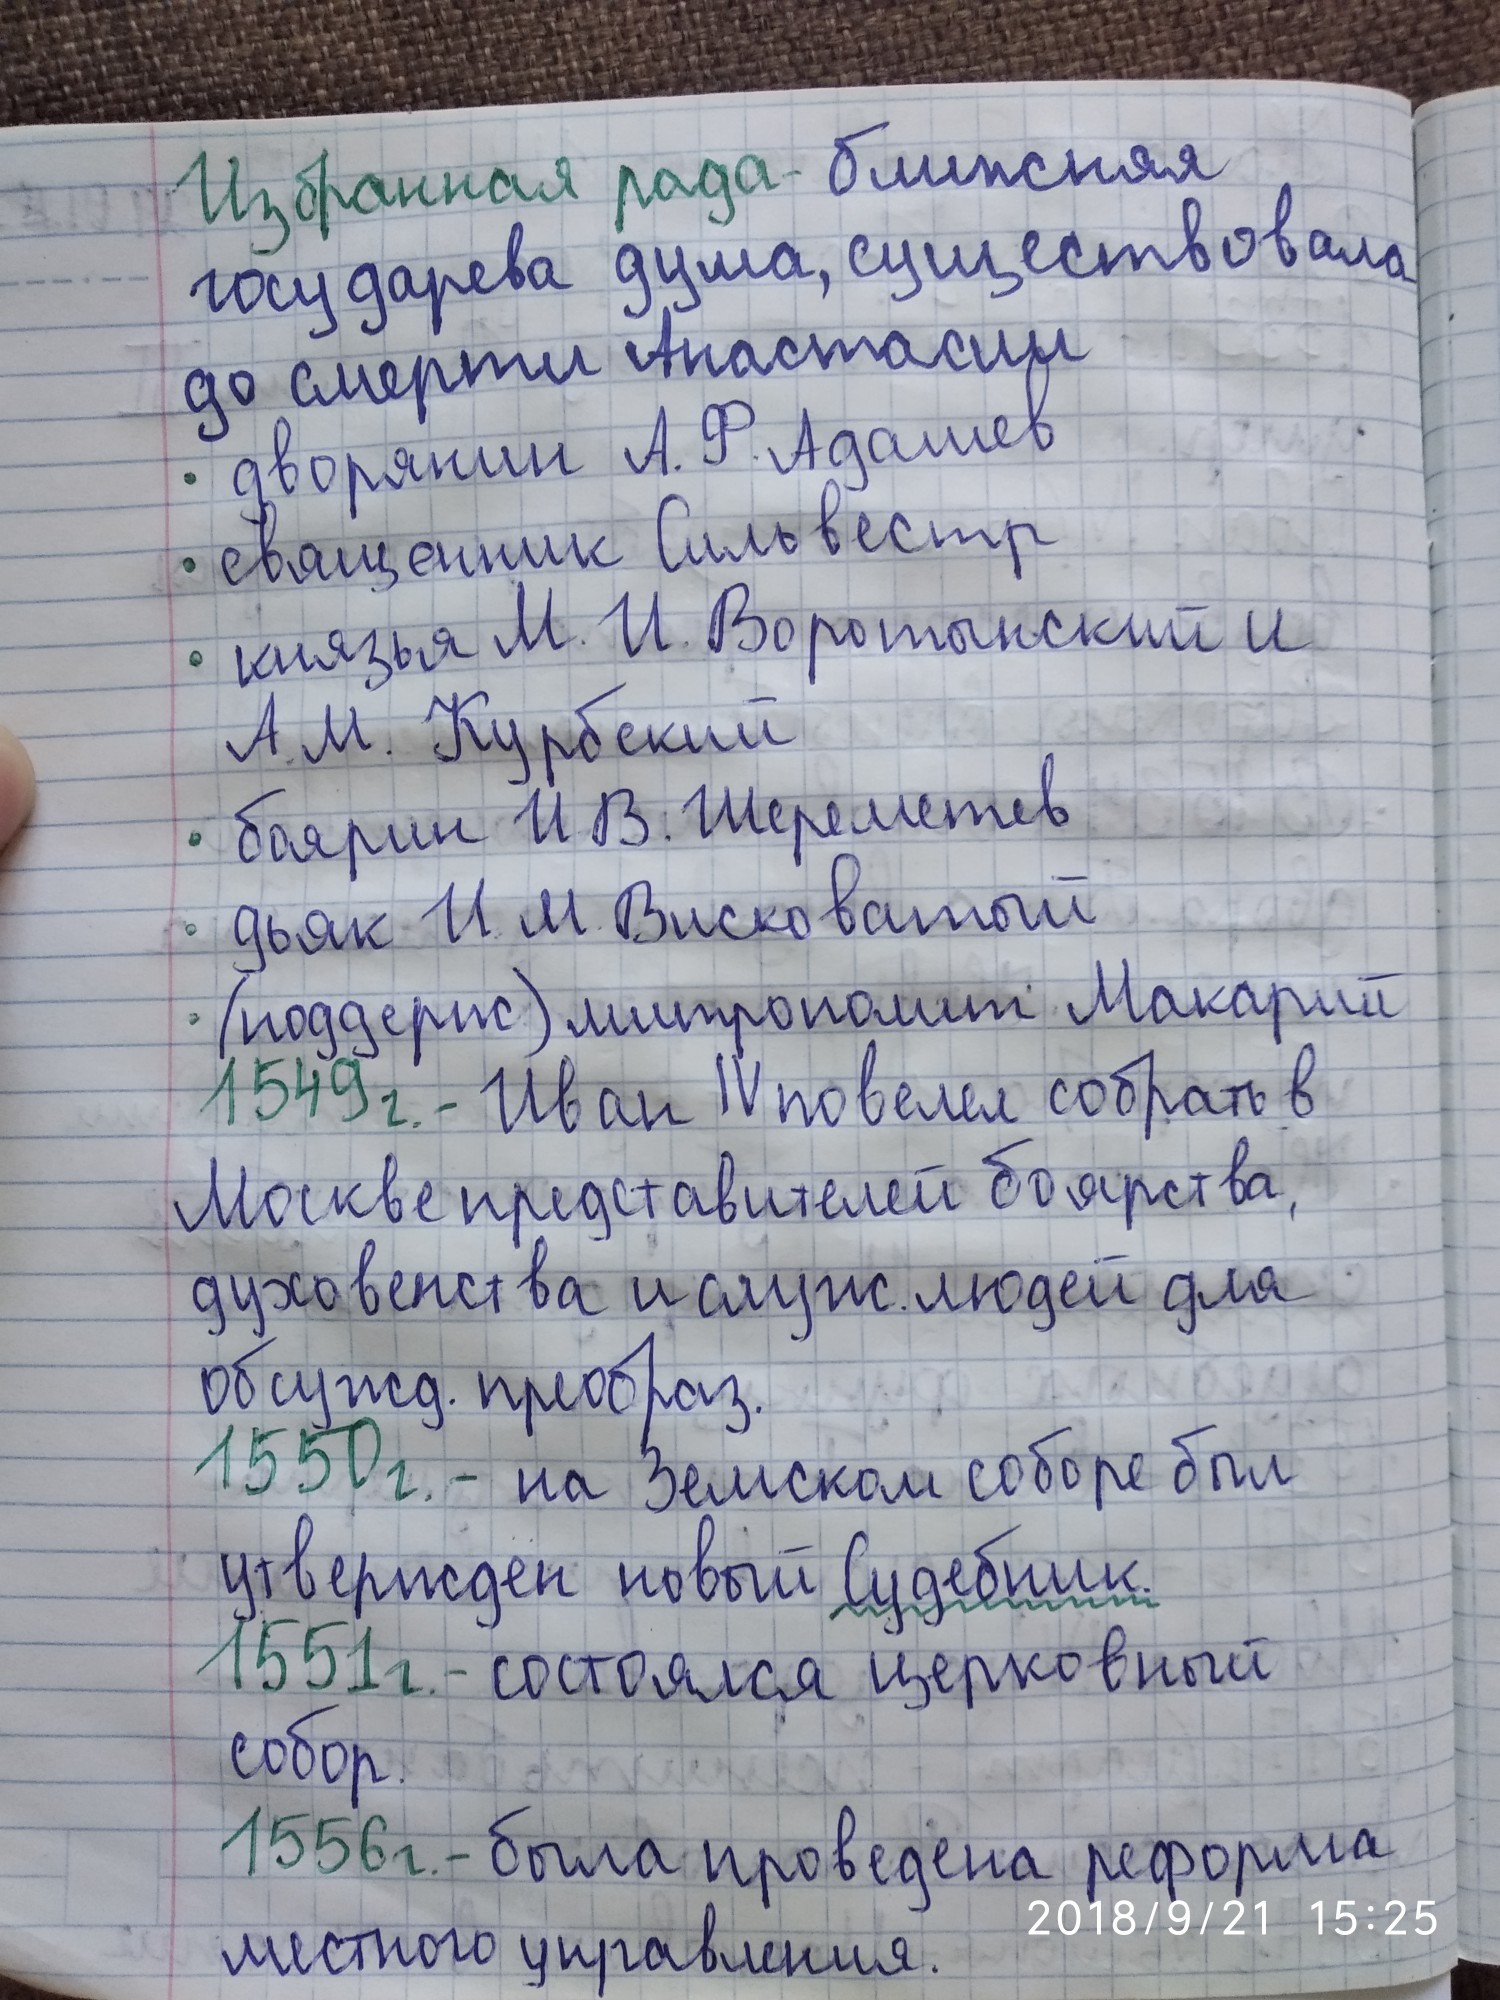 Избранная рада - ближняя
государева дума, существовала
до смерти Анастасии
• дворянин А. Ф. Адашев
• священник Сильвестр
• князья М. И. Воротынский и
А. М. Курбский
• боярин И В. Шереметев
• дьяк И М Висковатый
• (поддерж) митрополит Макарий
1549г. - Иван IV повелел собрать в
Москве представителей боярства,
духовенства и служ. людей для
обсужд. преобраз.
1550г. - на Земском соборе был
утвержден новый Судебник.
1551г. - состоялся церковный
собор.
1556г. - была проведена реформа
местного управления.
2018/9/21 15:25